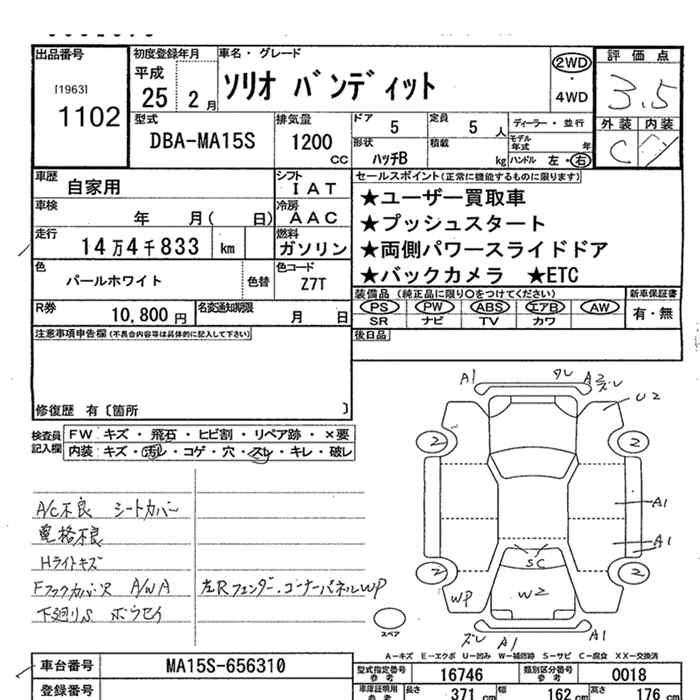 出品番号
[1963]
1102
初度登録年月
平成
25 2 月
車名・グレード
ソリオ バンディット
2WD
・
4WD
評価点
3.5
外装 内装
C
型式
DBA-MA15S
排気量
1200
CC
ドア 5
定員 5 人
ディーラー・並行
形状 ハッチB
積載 kg
モデル年式 年
ハンドル 左・右
車歴 自家用
シフト
IAT
車検 年 月( 日)
冷房
AAC
走行 14万4千833 km
燃料
ガソリン
色 パールホワイト 色替
色コード
Z7T
R券 10,800 円
名変通知期限 月 日
セールスポイント(正常に機能するものに限ります)
★ユーザー買取車
★プッシュスタート
★両側パワースライドドア
★バックカメラ ★ETC
装備品 (純正品に限り○をつけてください)
PS PW ABS エアB AW
SR ナビ TV カワ
新車保証書
有・無
注意事項申告欄(不具合内容等は具体的に記入して下さい)
後日品
修復歴 有〔箇所 〕
検査員
記入欄
FW キズ・飛石・ヒビ割・リペア跡・×要
内装 キズ・汚レ・コゲ・穴・スレ・キレ・破レ
A/C不良 シートカバー
電格不良
Hライトキズ
A/W A
左Rフェンダー.コーナーパネルWP
下廻りS
A1
A2
ズレ
U2
2
2
A1
A1
2
2
SC
WP
W2
ズレ
A1
A1
スペア
A-キズ E-エクボ U-凹み W-補修跡 S-サビ C-腐食 XX-交換済
車台番号 MA15S-656310
型式指定番号
参考
16746
類別区分番号
参考
0018
登録番号
車庫証明用
参考
長さ 371 cm
幅 162 cm
高さ 176 cm